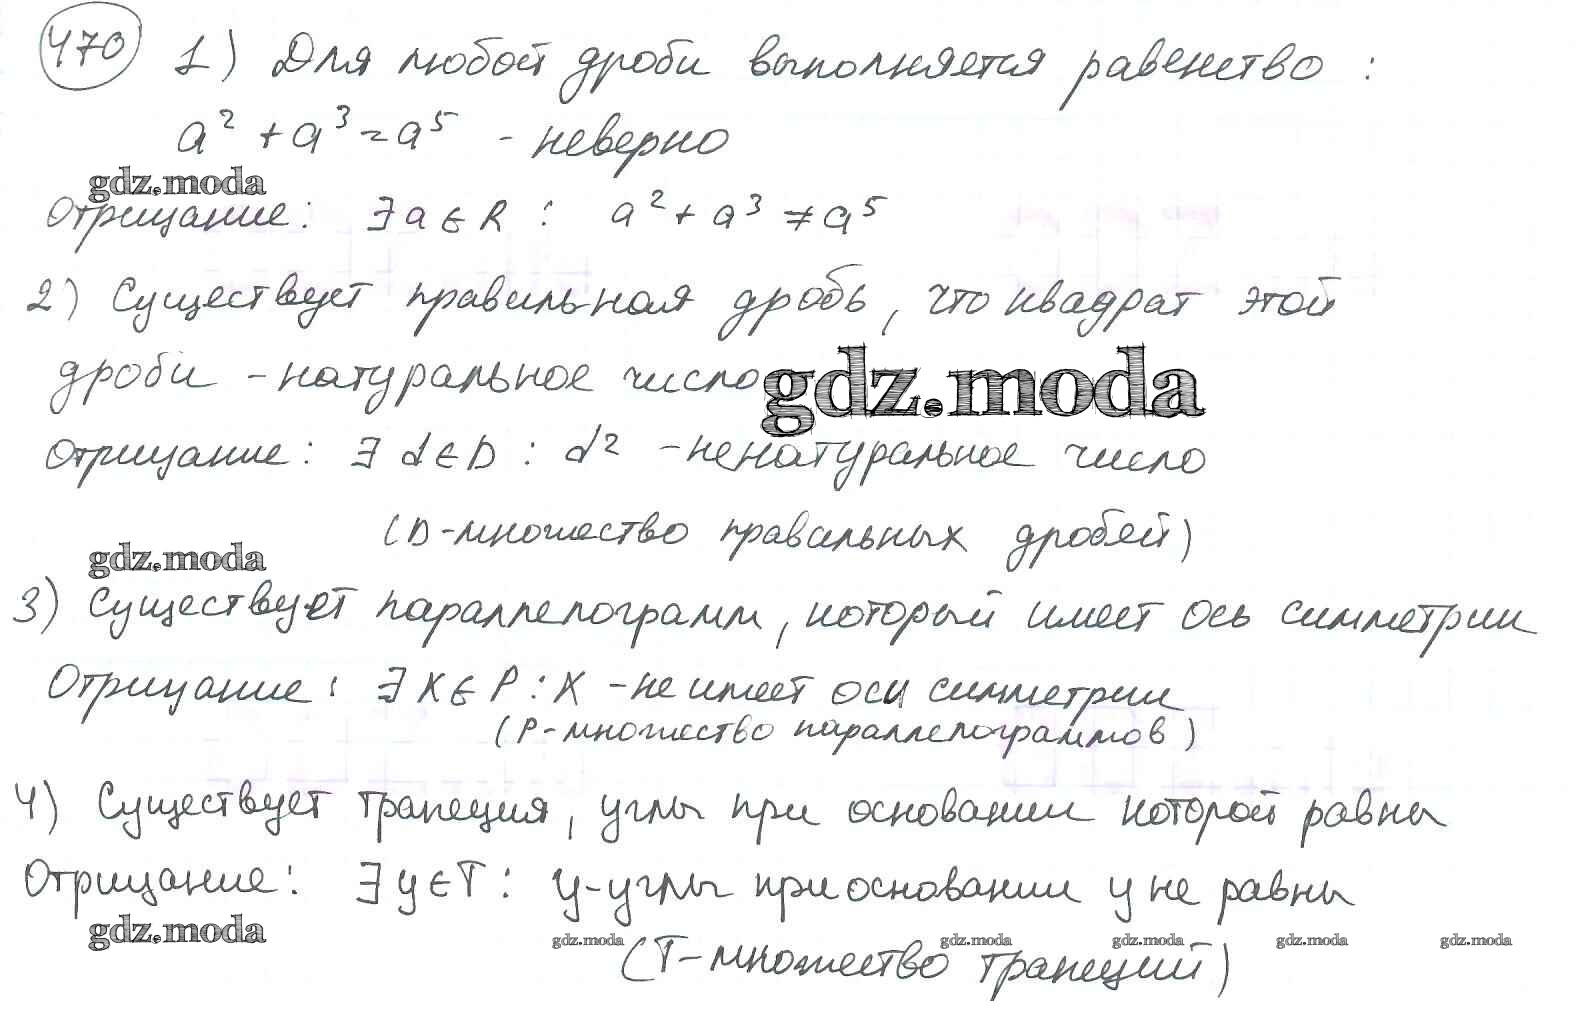 470 1) Для любой дроби выполняется равенство :
a² + a³ = a⁵ - неверно
gdz.moda
Отрицание: ∃ a ∈ R : a² + a³ ≠ a⁵
2) Существует правильная дробь, что квадрат этой
дроби - натуральное число
gdz.moda
Отрицание: ∃ d ∈ D : d² - ненатуральное число
(D - множество правильных дробей)
gdz.moda
3) Существует параллелограмм, который имеет ось симметрии
Отрицание: ∃ X ∈ P : X - не имеет оси симметрии
(P - множество параллелограммов)
4) Существует трапеция, углы при основании которой равны
Отрицание: ∃ y ∈ T : y - углы при основании y не равны
gdz.moda
gdz.moda gdz.moda gdz.moda gdz.moda gdz.moda
(T - множество трапеций)